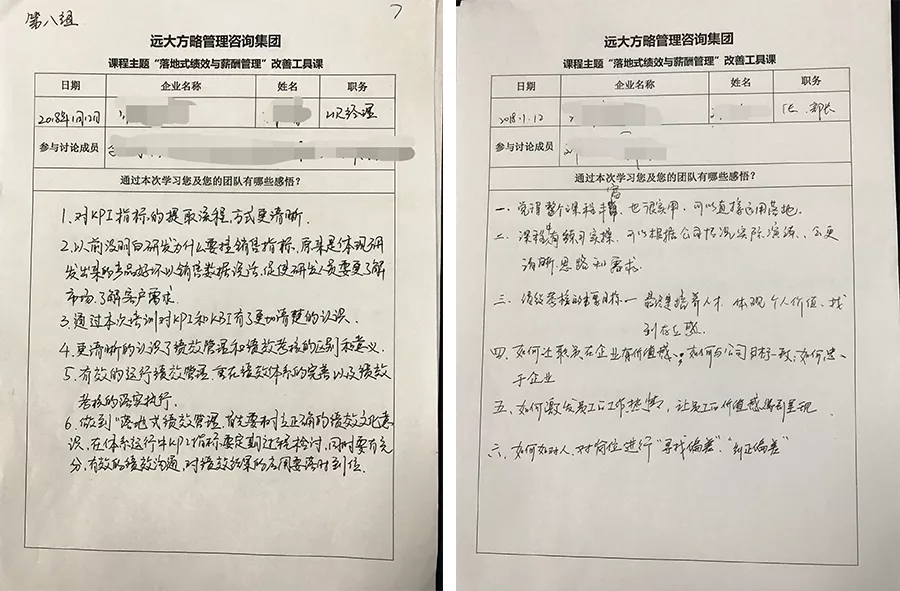 第八组
7
远大方略管理咨询集团
课程主题“落地式绩效与薪酬管理”改善工具课
日期 企业名称 姓名 职务
2018年11月12日 经理
参与讨论成员
通过本次学习您及您的团队有哪些感悟?
1.对KPI指标的提取流程、方式更清晰.
2.以前没明白研发为什么要挂销售指标,原来是体现研
发出来的产品好坏以销售数据说话,促使研发人员要更了解
市场.了解客户需求.
3.通过本次培训对KPI和KBI有了更加清楚的认识.
4.更清晰的认识了绩效管理和绩效考核的区别和意义.
5.有效的运行绩效管理,在绩效体系的完善以及绩效
考核的落实执行.
6.做到“落地式绩效管理,首先要树立正确的绩效文化意
识,在体系运行中KPI指标要定期过程检讨,同时要有充
分,有效的绩效沟通,对绩效结果的应用要落时到位.
远大方略管理咨询集团
课程主题“落地式绩效与薪酬管理”改善工具课
日期 企业名称 姓名 职务
2018.11.12 部长
参与讨论成员
通过本次学习您及您的团队有哪些感悟?
一、觉得整个课程丰富,也很实用,可以直接运用落地。
二、课程有练习实操,可以根据公司情况实际演练,会更
清晰思路和需求。
三、绩效考核的主要目标一 是培养人才,体现个人价值,找
到存在感.
四、如何让职员在企业有价值感,如何与公司目标一致,如何忠
于企业
五、如何激发员工的工作热情,让员工的价值感得到呈现.
六、如何对人、对岗位进行“寻找偏差”、“纠正偏差”